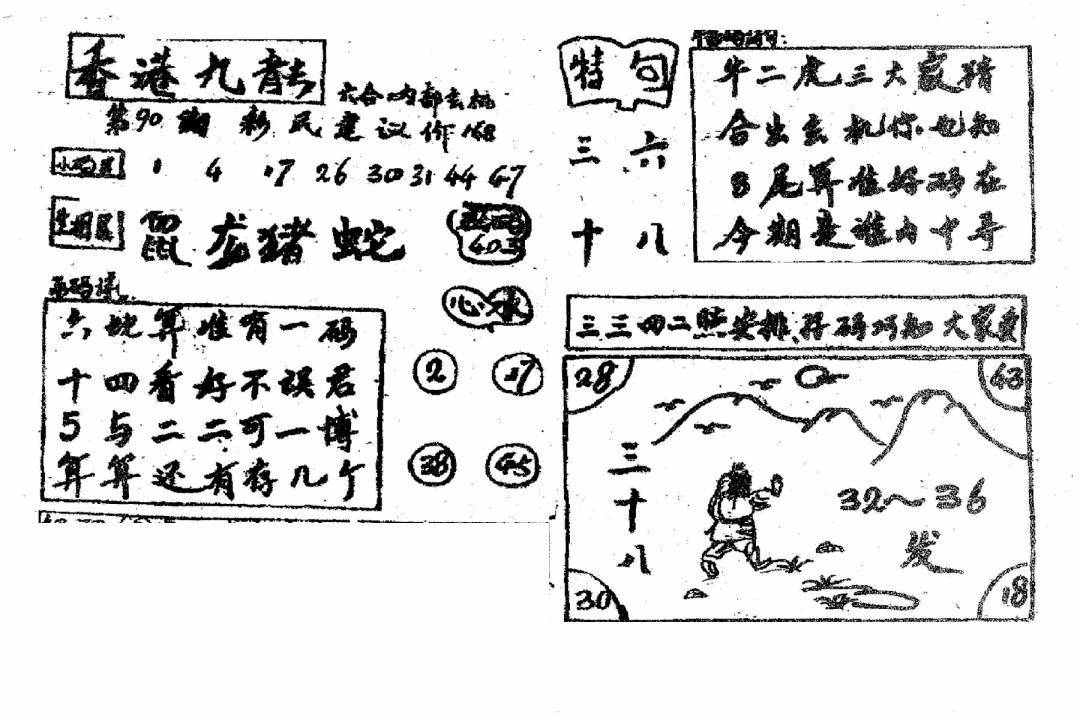 香港九龍
六合内部玄机
第90期 彩民建议作168
小码区 1 4 17 26 30 31 44 47
生肖区 鼠 龙 猪 蛇
403
六蛇算准有一码
十四看好不误君
5与二二可一博
算算还有存几个
心水
2 17
38 45
特句
三六
十八
牛二虎三大家猜
合出玄机你也知
8尾算准好码在
今期是谁内中寻
三三四二照安排,好码巧知大家发
28 43
三十八
32～36
发
30 18